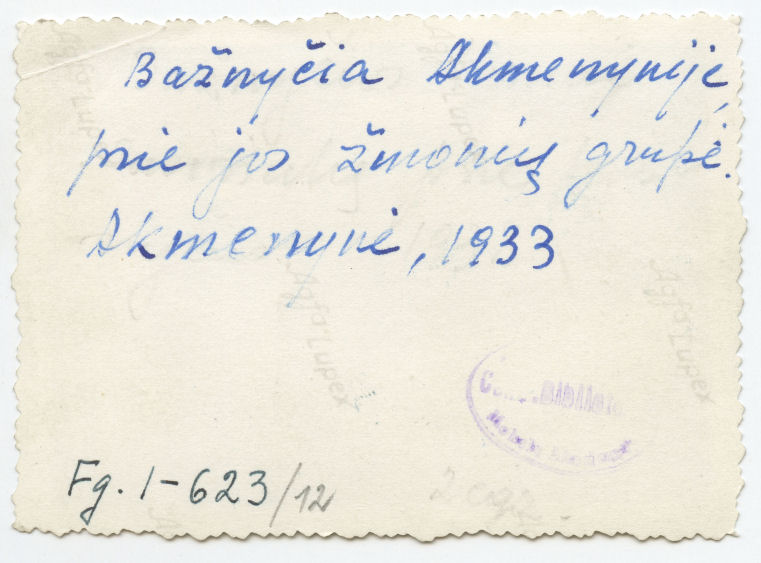 Bažnyčia Akmenynije,
prie jos žmonių grupė.
Akmenynė, 1933
Agfa Lupex
Agfa Lupex
Agfa Lupex
Agfa Lupex
Fg. 1-623/12
2 egz.